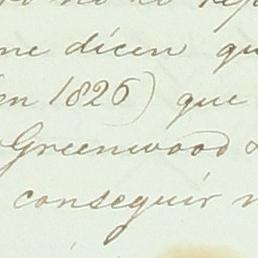 me dicen qu
en 1826) que
Greenwood &
conseguir